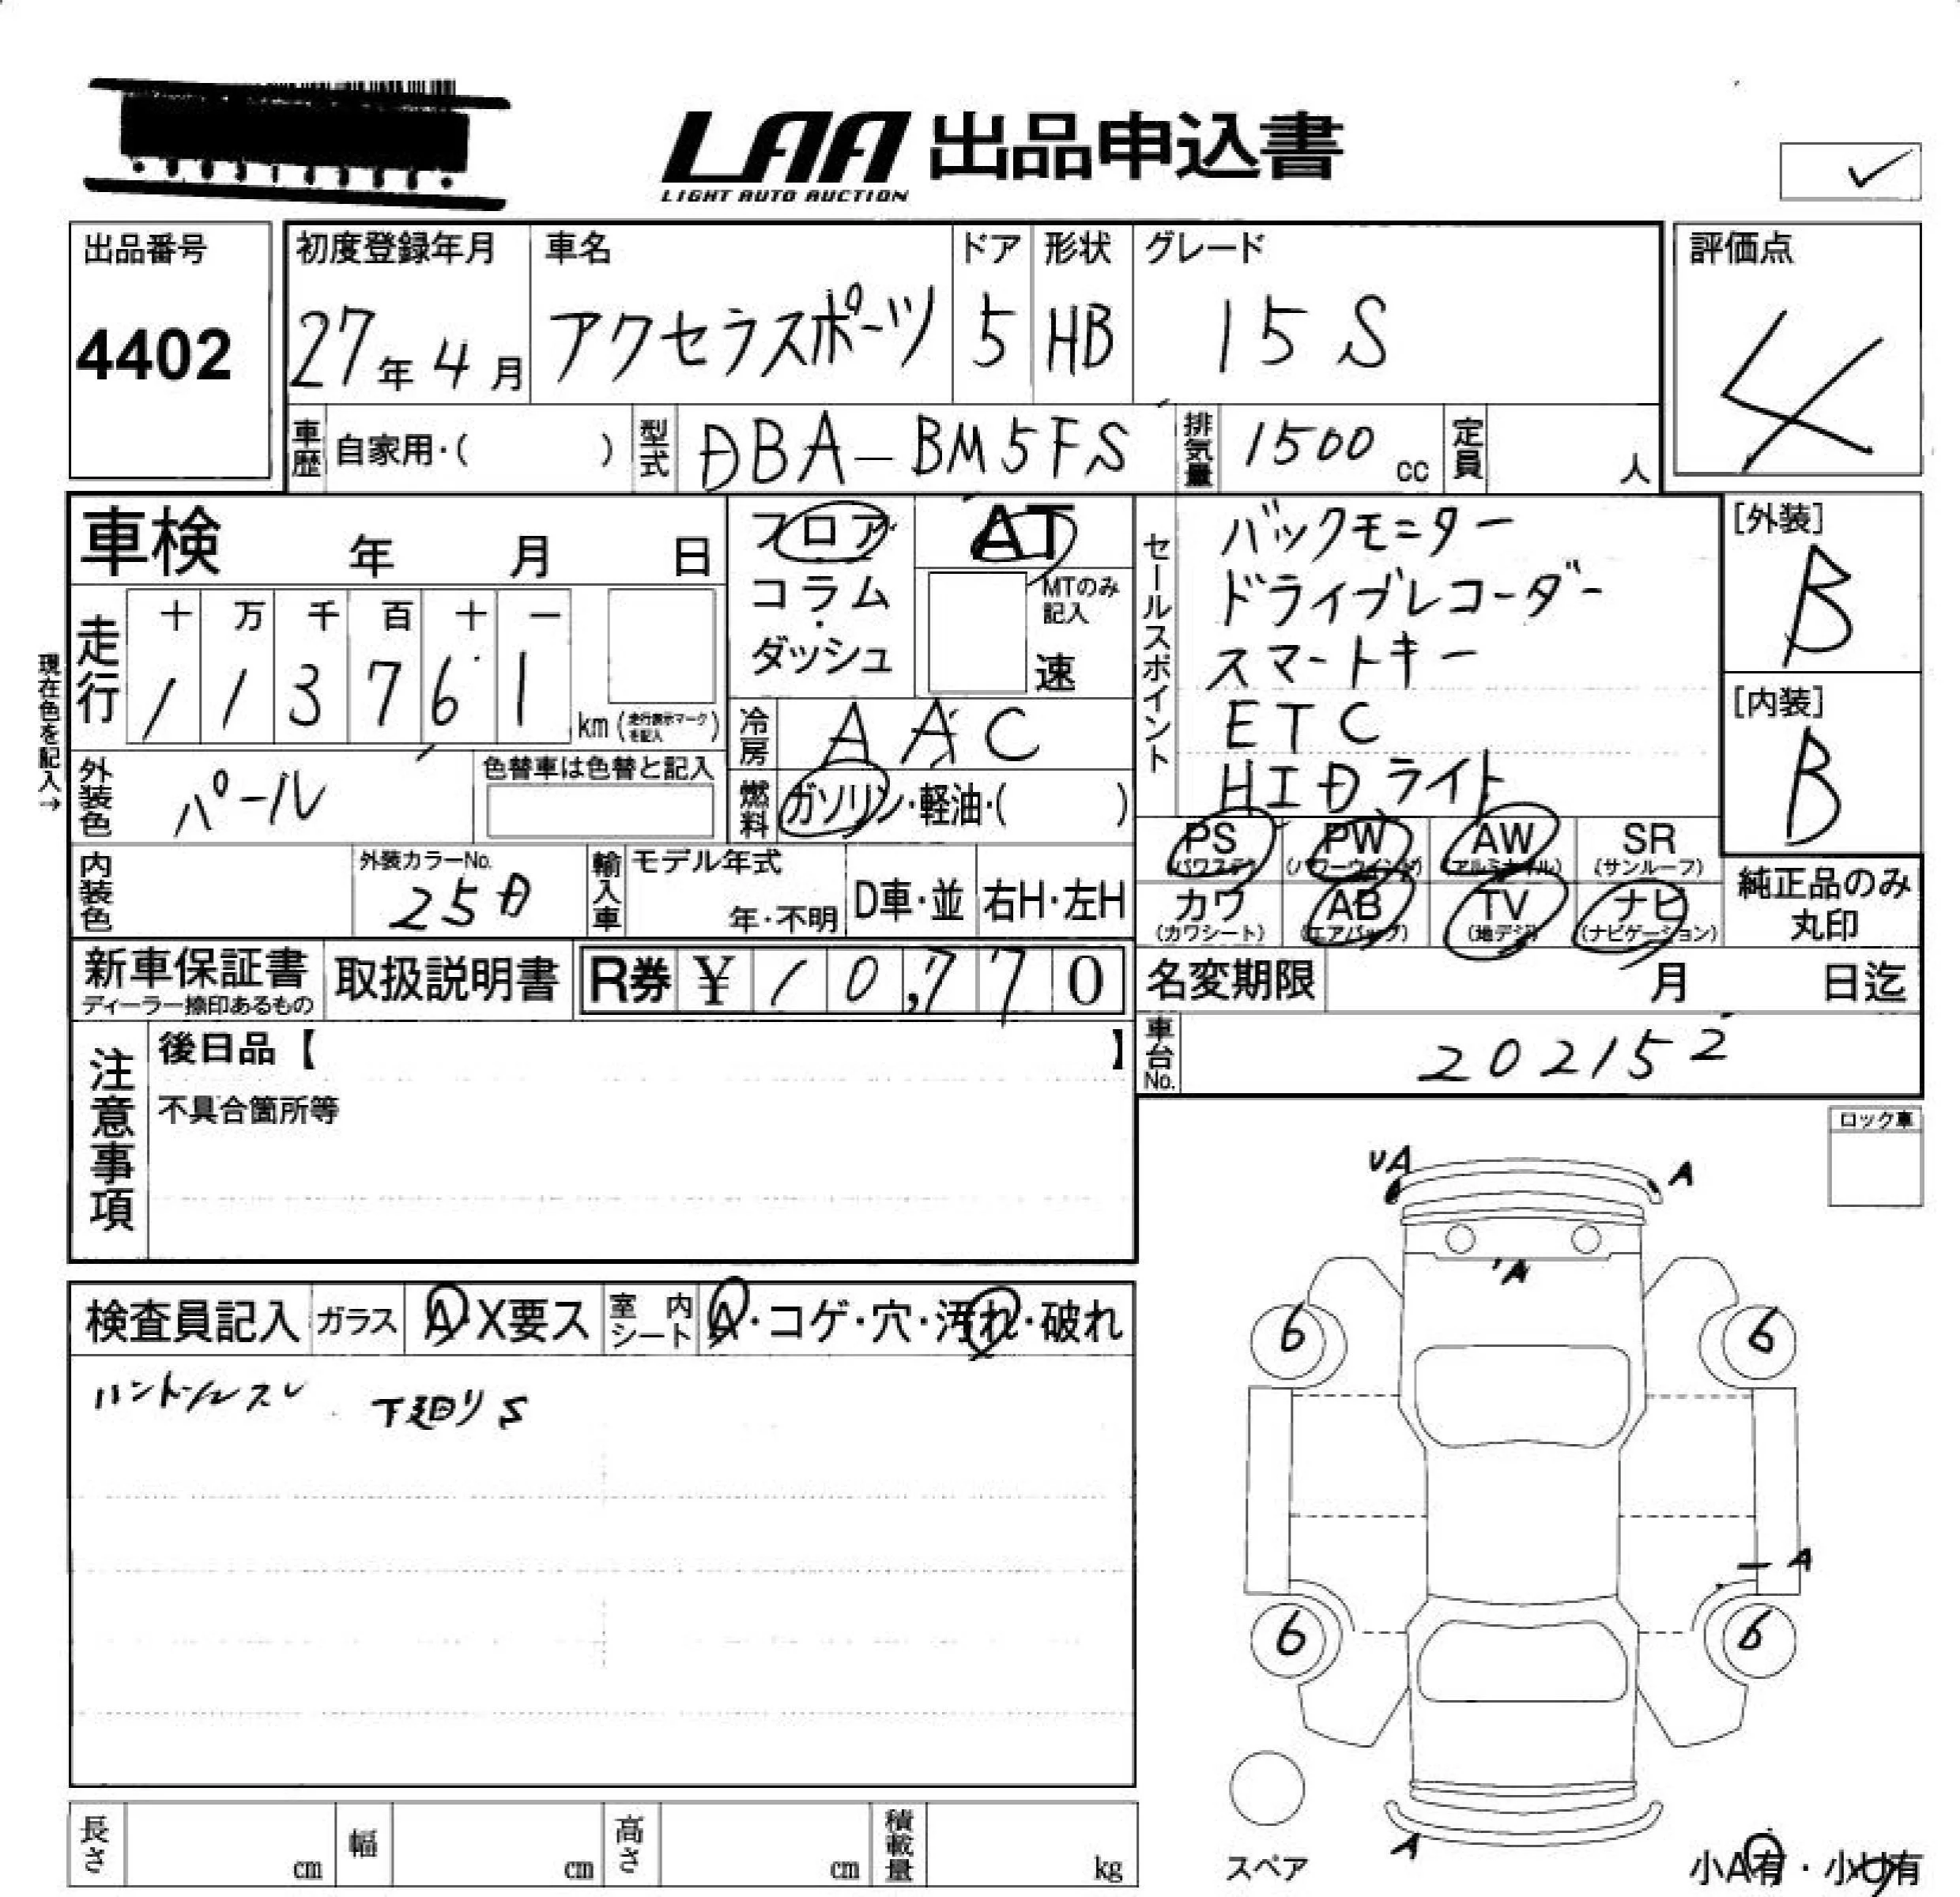 LAA 出品申込書
LIGHT AUTO AUCTION
✓
出品番号
4402
初度登録年月
27年 4月
車名
アクセラスポーツ
ドア
5
形状
HB
グレード
15 S
評価点
4
車歴 自家用・( )
型式 DBA-BM5FS
排気量 1500 cc
定員 人
車検 年 月 日
フロア・コラム・ダッシュ
AT
MTのみ記入
速
セールスポイント
バックモニター
ドライブレコーダー
スマートキー
ETC
HIDライト
[外装]
B
[内装]
B
現在色を記入→
走行 十 万 千 百 十 一
1 1 3 7 6 1
km (走行表示マークを記入)
冷房 A A C
外装色 パール
色替車は色替と記入
燃料 ガソリン・軽油・( )
PS (パワステ)
PW (パワーウインドウ)
AW (アルミホイル)
SR (サンルーフ)
カワ (カワシート)
AB (エアバッグ)
TV (地デジ)
ナビ (ナビゲーション)
純正品のみ
丸印
内装色
外装カラーNo.
25D
輸入車
モデル年式
年・不明
D車・並
右H・左H
新車保証書
ディーラー捺印あるもの
取扱説明書
R券 ¥ 10,770
名変期限 月 日迄
車台No. 202152
注意事項
後日品【 】
不具合箇所等
ロック車
UA
A
A
検査員記入
ガラス A X要ス
室内シート A・コゲ・穴・汚れ・破れ
ハンドルスレ 下廻りS
6 6
A
6 6
スペア
A
小A有・小U有
長さ cm
幅 cm
高さ cm
積載量 kg